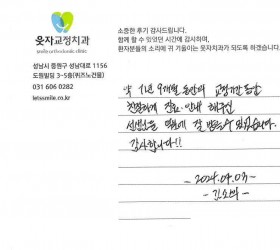 웃자교정치과
smile orthodontic clinic
성남시 중원구 성남대로 1156
도원빌딩 3-5층(퀴즈노건물)
031 606 0282
letssmile.co.kr
소중한 후기 감사드립니다.
함께 할 수 있었던 시간에 감사하며,
환자분들의 소리에 귀 기울이는 웃자교정치과가 되도록 하겠습니다.
약 1년 9개월 동안의 교정기간 동안
친절하게 진료·안내 해주신
선생님들 덕분에 잘 받을수 있었습니다.
감사합니다!!
- 2024.09.03 -